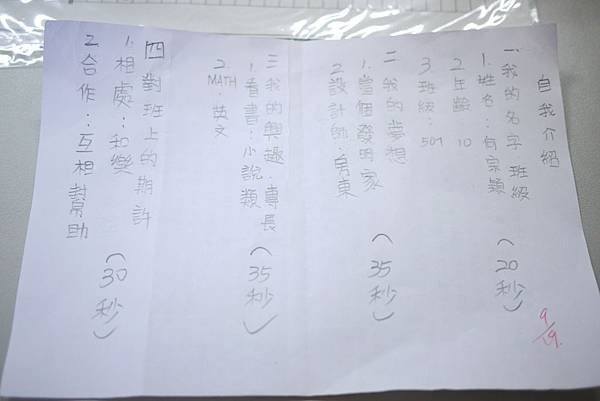 自我介紹
一、我的名字 班級 (20秒)
1. 姓名:何宗穎
2. 年齡 10
3. 班級:501
二 我的夢想 (35秒)
1. 當個發明家
2. 設計師.房東
三 我的興趣.專長 (35秒)
1. 看書:小說類
2. MATH. 英文
四 對班上的期許 (30秒)
1. 相處:和樂
2. 合作:互相幫助
9/19.